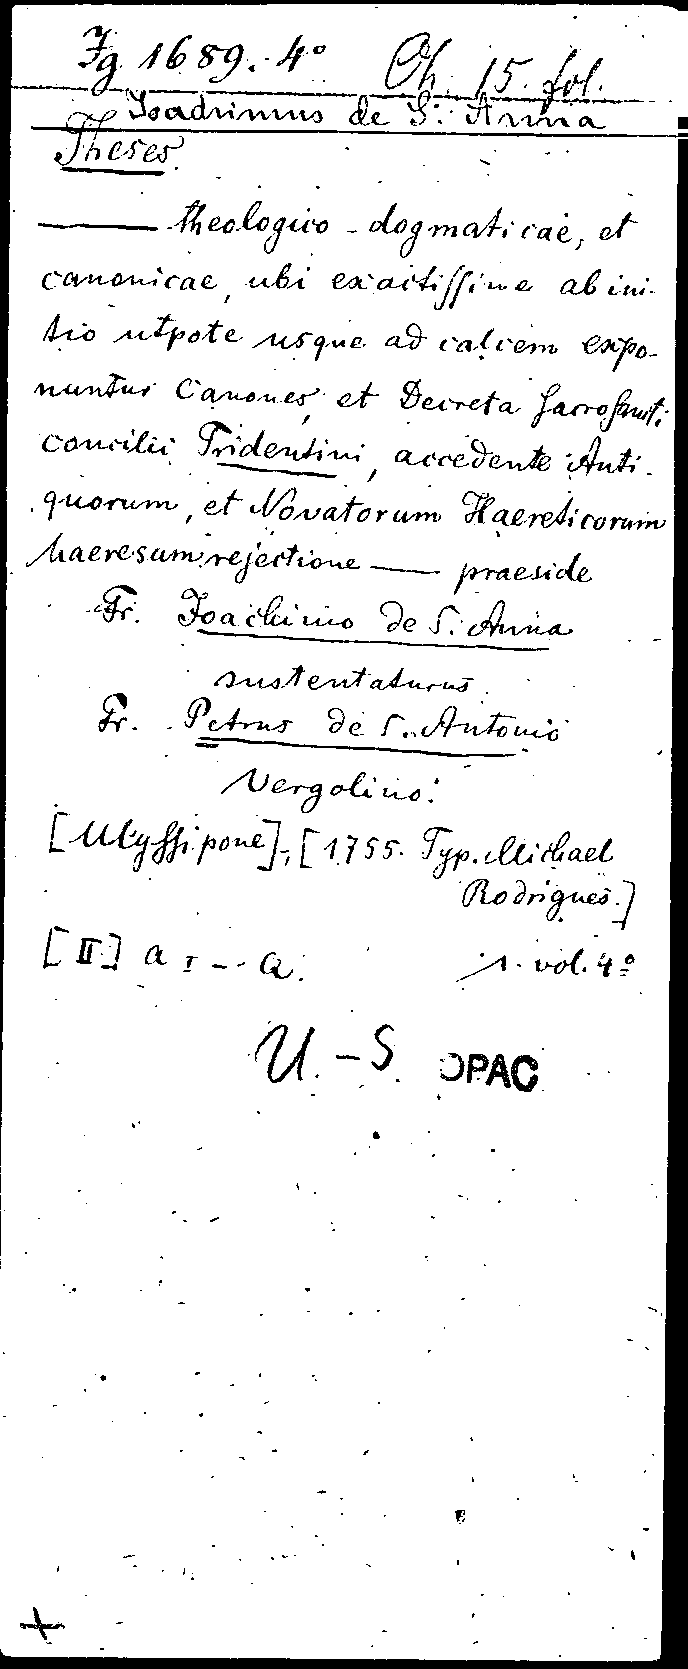 Jg 1689. 4° Ch. 15. fol.
Joachimus de S. Anna
Theses.
——— theologico-dogmaticae, et
canonicae, ubi exactissime ab ini-
tio utpote usque ad calcem expo-
nuntur Canones, et Decreta Sacrosancti
concilii Tridentini, accedente Anti-
quorum, et Novatorum Haereticorum
haeresum rejectione —— praeside
Fr. Joachimo de S. Anna
sustentaturus
Fr. Petrus de S. Antonio
Vergolino.
[Ulyssipone], [1755. Typ. Michael
Rodrigues.]
[II] a I - a. 1. vol. 4°
U.-S. OPAC